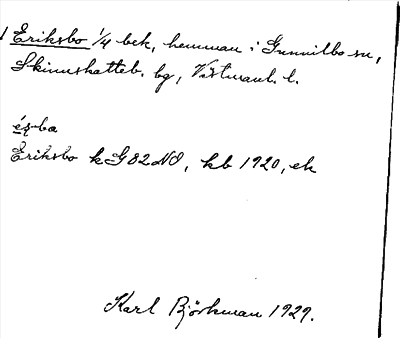 Eriksbo 1/4 bek, hemman i Gunnilbo sn,
Skinnskatteb. bg, Västmanl. l.
és-bo
Eriksbo k G 82 NO, kb 1920, ek
Karl Björkman 1929.